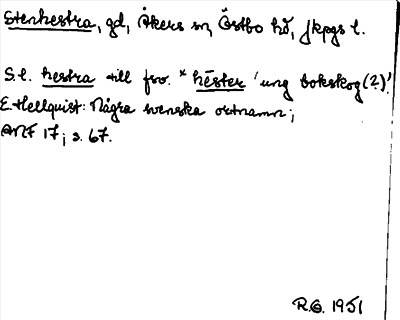 Stenhestra, gd, Åkers sn, Östbo hd, Jkpgs l.
S.l. hestra till fsv. * hēster 'ung bokskog(?)'.
E. Hellquist: Några svenska ortnamn;
ANF 17; s. 67.
R.G. 1951